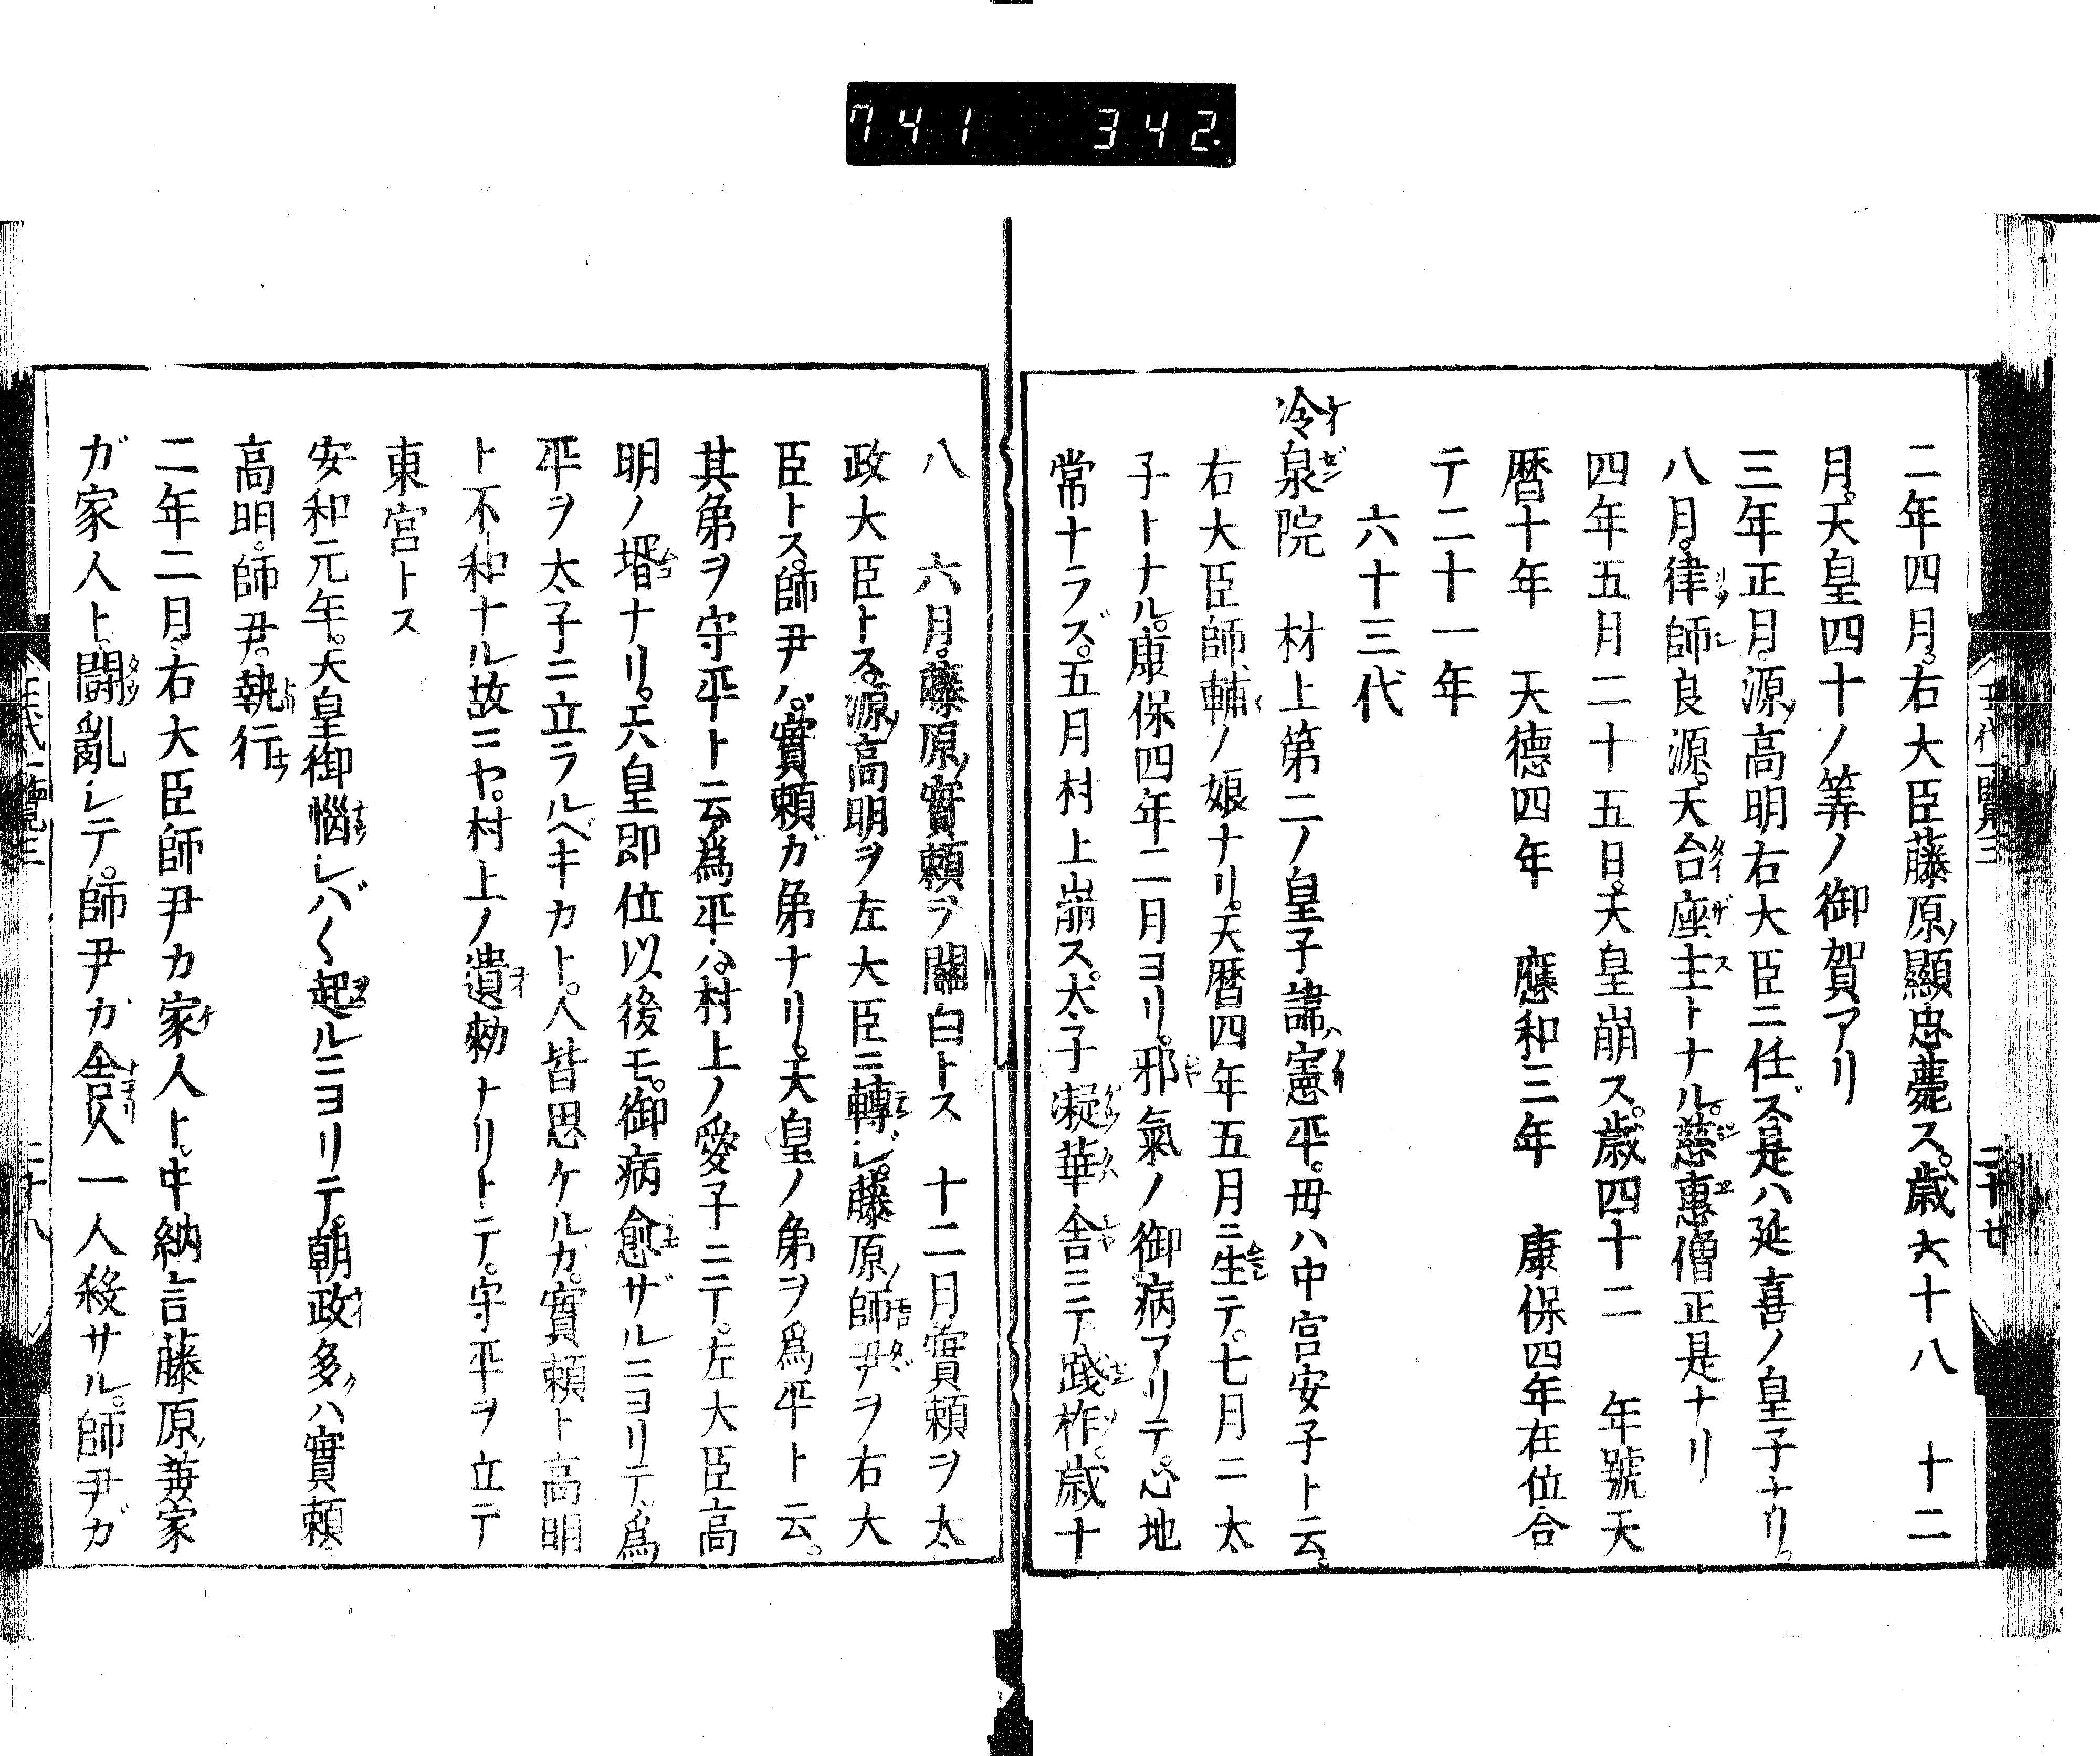 741 342.
二年四月。右大臣藤原ノ顯忠薨ス。歳六十八 十二
月。天皇四十ノ筭ノ御賀アリ
三年正月。源ノ高明右大臣ニ任ズ是ハ延喜ノ皇子ナリ。
八月。律師良源。天台座主トナル。慈惠僧正是ナリ
四年五月二十五日。天皇崩ス。歳四十二 年號天
暦十年 天德四年 應和三年 康保四年在位合
テ二十一年
六十三代
冷泉院 村上第二ノ皇子諱ハ憲平。母ハ中宮安子ト云。
右大臣師輔ノ娘ナリ。天暦四年五月ニ生テ。七月ニ太
子トナル。康保四年二月ヨリ。邪氣ノ御病アリテ。心地
常ナラズ。五月村上崩ス。太子凝華舎ニテ踐柞。歳十
八 六月。藤原ノ實頼ヲ關白トス 十二月實頼ヲ太
政大臣トス。源ノ高明ヲ左大臣ニ轉ジ。藤原ノ師尹ヲ右大
臣トス。師尹ハ。實頼ガ弟ナリ。天皇ノ弟ヲ爲平ト云。
其弟ヲ守平ト云。爲平ハ。村上ノ愛子ニテ。左大臣高
明ノ壻ナリ。天皇即位以後モ。御病愈ザルニヨリテ。爲
平ヲ太子ニ立ラルベキカト。人皆思ケルカ。實頼ト高明
ト不和ナル故ニヤ。村上ノ遺勅ナリトテ。守平ヲ立テ
東宮トス
安和元年。天皇御惱シバ〱起ルニヨリテ。朝政多クハ實頼。
高明。師尹。執行
二年二月。右大臣師尹カ家人ト。中納言藤原ノ兼家
ガ家人ト。鬪亂シテ。師尹カ舎人一人殺サル。師尹ガ